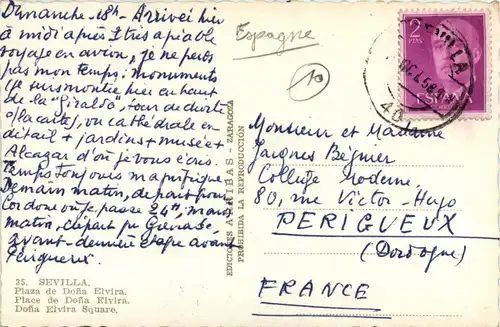 Dimanche - 18h - Arrivée hier
à midi après 1 très agréable
voyage en avion, je ne perds
pas mon temps : monuments
(je suis montée hier en haut
de la "Giralda", tour de droite
s/la carte), vu cathédrale en
détail + jardins + musée +
Alcazar d'où je vous écris.
Temps toujours magnifique.
Demain matin, départ pour
Cordoue où je passe 24h, mardi
matin, départ pr Grenade,
avant-dernière étape avant
Périgueux.
35. SEVILLA.
Plaza de Doña Elvira.
Place de Doña Elvira.
Doña Elvira Square.
EDICIONES ARRIBAS - ZARAGOZA
PROHIBIDA LA REPRODUCCIÓN
Espagne
10
2
PTAS
ESPAÑA
Monsieur et Madame
Jacques Béguier
Collège Moderne
80, rue Victor-Hugo
PERIGUEUX
(Dordogne)
FRANCE